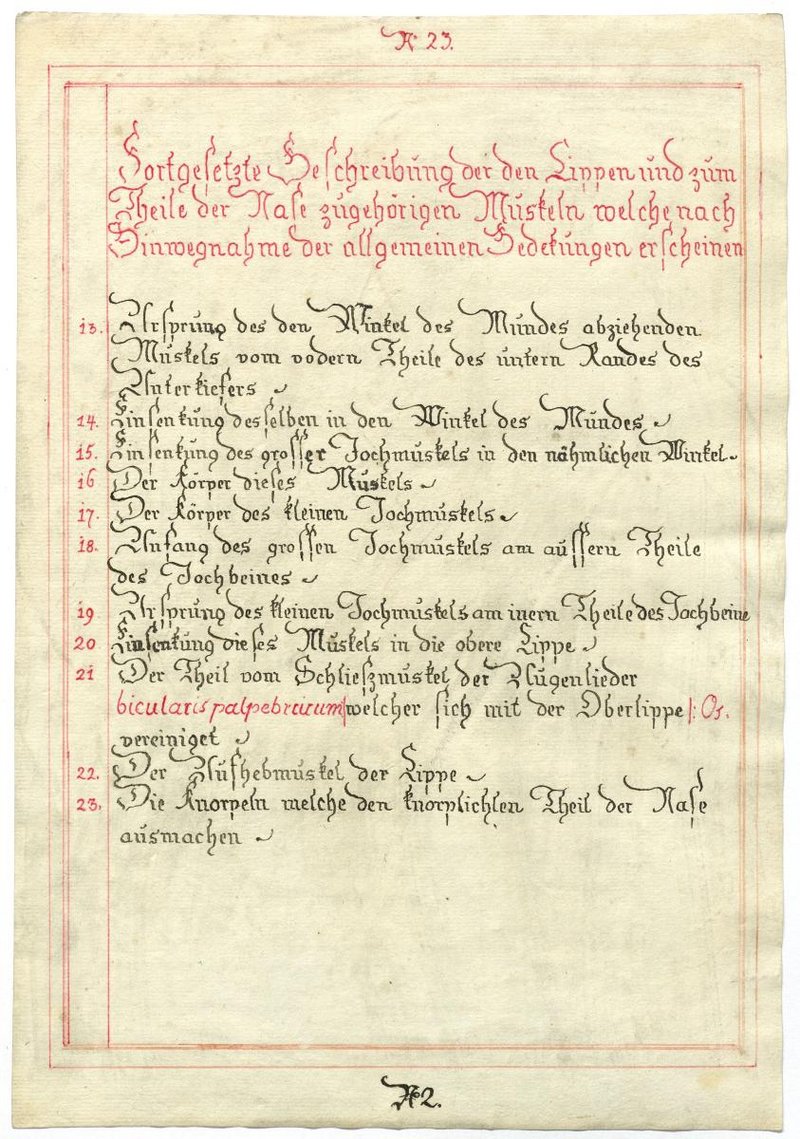 N° 23.
Fortgesetzte Beschreibung der den Lippen und zum
Theile der Nase zugehörigen Muskeln welche nach
Hinwegnahme der allgemeinen Bedekungen erscheinen
13. Ursprung des den Winkel des Mundes abziehenden
Muskels vom vodern Theile des untern Randes des
Unterkiefers
14. Einsenkung desselben in den Winkel des Mundes
15. Einsenkung des grosser Jochmuskels in den nähmlichen Winkel
16 Der Körper dieses Muskels
17. Der Körper des kleinen Jochmuskels
18. Anfang des grossen Jochmuskels am aüssern Theile
des Jochbeines
19 Ursprung des kleinen Jochmuskels am inern Theile des Jochbeine
20 Einsenkung dieses Muskels in die obere Lippe
21 Der Theil vom Schlieszmuskel der Augenlieder
bicularis palpebrarum welcher sich mit der Oberlippe |: Or.
vereiniget
22. Der Aufhebmuskel der Lippe
23. Die Knorpeln welche den knorplichten Theil der Nase
ausmachen
N° 2.